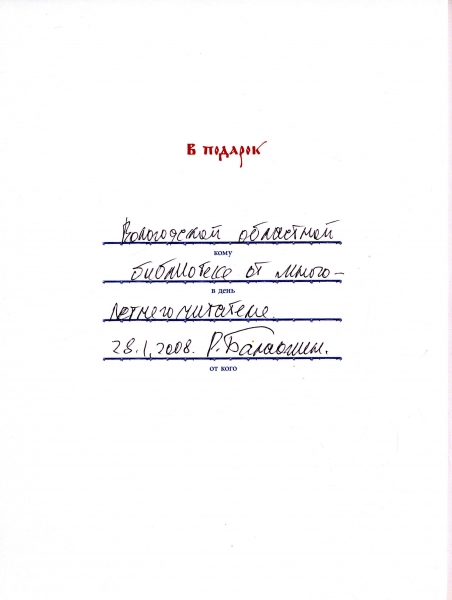 В подарок
Вологодской областной
кому
библиотеке от много-
в день
летнего читателя.
28.1.2008. Р. Балакшин.
от кого